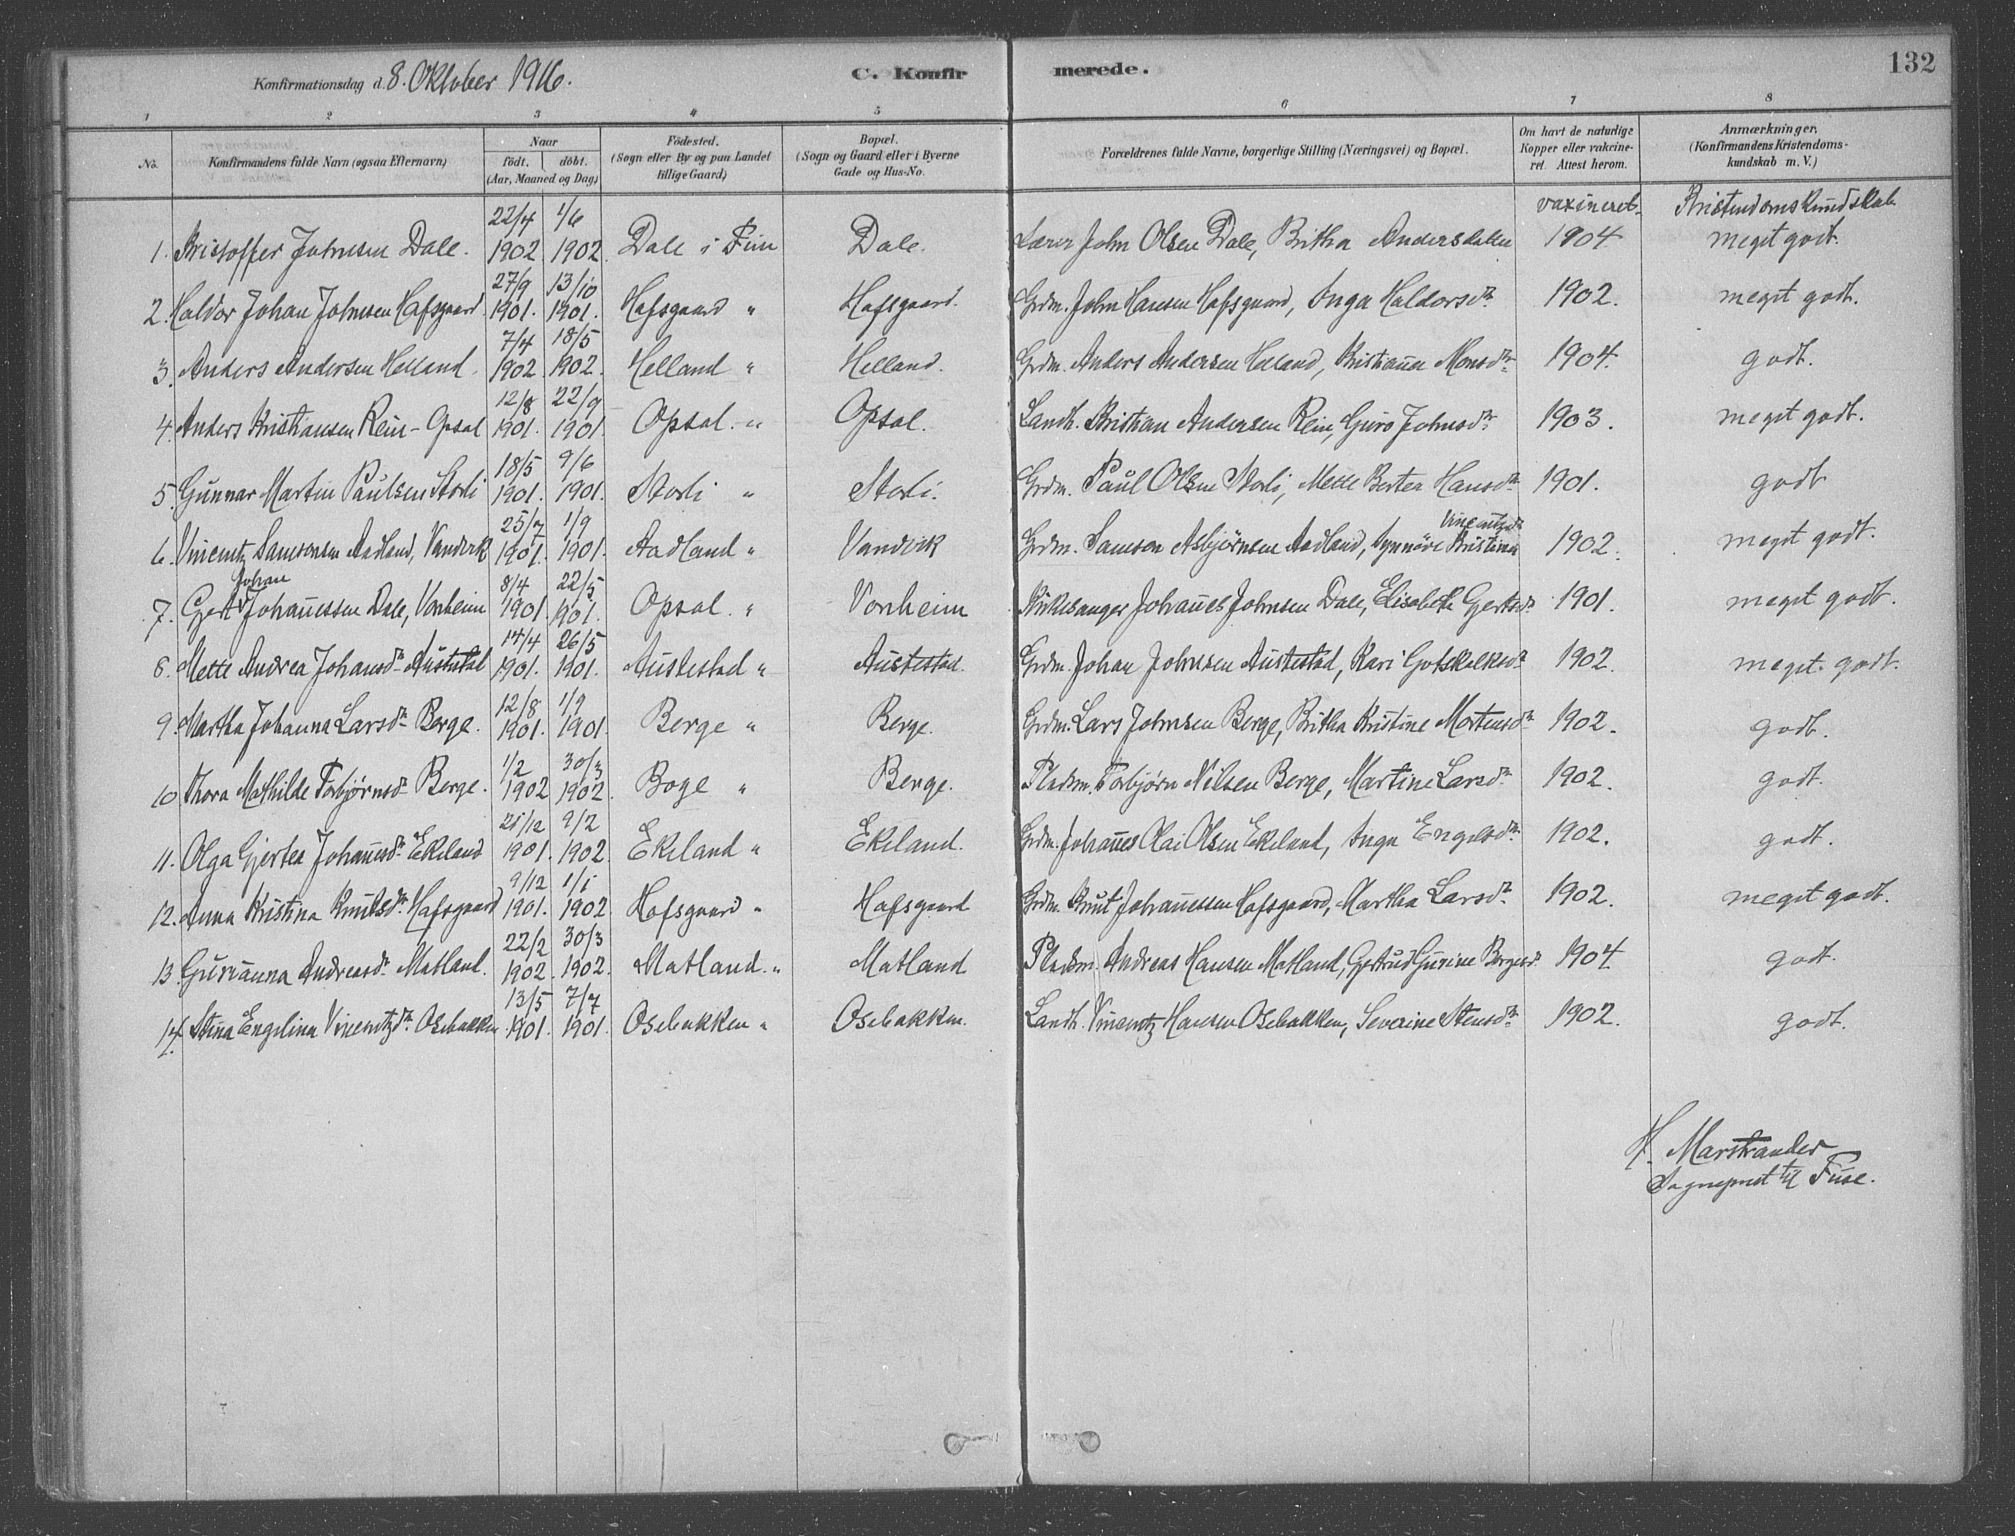 132
Konfirmationsdag d. 8. Oktober 1916.
C. Konfirmerede.
1 2 3 4 5 6 7 8
No. Konfirmandens fulde Navn (ogsaa Efternavn) Naar födt. döbt. (Aar, Maaned og Dag) Födested. (Sogn eller By og paa Landet tillige Gaard) Bopæl. (Sogn og Gaard eller i Byerne Gade og Hus-No. Forældrenes fulde Navne, borgerlige Stilling (Næringsvei) og Bopæl. Om havt de naturlige Kopper eller vakcineret. Attest herom. Anmærkninger. (Konfirmandens Kristendomskundskab m. V.)
vaxineret. Kristendomskundskab
1. Kristoffer Johnsen Dale. 22/4 1902 1/6 1902 Dale i Fuse Dale. Lærer John Olsen Dale, Britha Andersdatter 1904 meget godt.
2. Haldor Johan Johnsen Hafsgaard 27/9 1901. 13/10 1901. Hafsgaard " Hafsgaard. Grdm. John Hansen Hafsgaard, Inga Haldorsdtr 1902. meget godt.
3. Anders Andersen Helland 7/4 1902 18/5 1902. Helland " Helland. Grdm. Anders Andersen Helland, Kristianna Monsdtr 1904. godt.
4. Anders Kristiansen Rein-Opsal 12/8 1901. 22/9 1901. Opsal. " Opsal. Landh. Kristian Andersen Rein, Guro Johnsdtr 1903. meget godt.
5. Gunnar Martin Paulsen Storli 18/5 1901. 9/6 1901. Storli " Storli. Grdm. Paul Olsen Storli, Mette Bertea Hansdtr 1901. godt
6. Vincentz Samsonsen Aadland, Vandvik 25/7 1901. 1/9 1901. Aadland " Vandvik Grdm. Samson Asbjørnsen Aadland, Synnöve Kristina Vincentzdtr 1902. meget godt.
7. Gert Johan Johannessen Dale, Vonheim 8/4 1901. 22/5 1901. Opsal. " Vonheim Kirkesanger Johannes Johnsen Dale, Elisabeth Gertsdtr 1901. meget godt.
8. Mette Andrea Johansdtr Austestad 14/4 1901. 26/5 1901. Austestad " Austestad. Grdm. Johan Johnsen Austestad, Kari Gotskalksdtr 1902. meget godt.
9. Martha Johanna Larsdtr Berge. 12/8 1901. 1/9 1901. Berge " Berge. Grdm. Lars Johnsen Berge, Britha Kristine Mortensdtr 1902. godt.
10 Thora Mathilde Torbjørnsdtr Berge. 1/2 1902 30/3 1902. Boge " Berge. Pladsm. Torbjørn Nilsen Berge, Martine Larsdtr 1902. godt.
11. Olga Gjertea Johannsdtr Ekeland 21/12 1901. 9/2 1902 Ekeland " Ekeland. Grdm. Johannes Olai Olsen Ekeland, Inga Engelsdtr 1902. godt.
12. Anna Kristina Knutsdtr Hafsgaard 9/12 1901. 1/1 1902 Hafsgaard " Hafsgaard Grdm. Knut Johannessen Hafsgaard, Martha Larsdtr 1902. meget godt.
13. Gurianna Andreasdtr Matland. 22/2 1902. 30/3 1902. Matland. " Matland Pladsm. Andreas Hansen Matland, Gertrud Gurine Børgesdtr 1904. godt.
14. Stina Engelina Vincentzdtr Osebakken 13/5 1901. 7/7 1901. Osebakken " Osebakken. Landh. Vincentz Hansen Osebakken, Severine Stensdtr 1902. godt.
H. Marstrander
Sogneprest til Fuse.